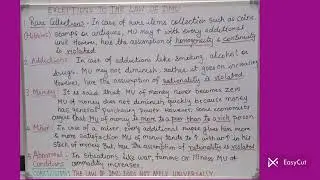 EXCEPTIONS TO THE LAW OF DMU
1. Rare Collections:- In case of rare items collection such as coins,
(Hobbies) stamps or antiques, MU may ↑ with every additional
unit. However, here the assumption of homogeneity & continuity
is violated.
2. Addictions: In case of addictions like smoking, alcohol or
drugs. MU may not diminish rather it goes on increasing.
However, here the assumption of rationality is violated.
3. Money: It is said that MU of money never becomes zero.
MU of money does not diminish quickly because money
has various purchasing power. However, some economists
argue that MU of money is more to a poor than to a rich person.
4. Miser: In case of a miser, every additional rupee gives him more
& more satisfaction. MU of money tends to ↑ with ↑ in his
stock of money. But, here the assumption of rationality is violated.
5. Abnormal Conditions: In situations like war, famine or illness MU of
commodity increases.
THE LAW OF DMU DOES NOT APPLY UNIVERSALLY.
EasyCut